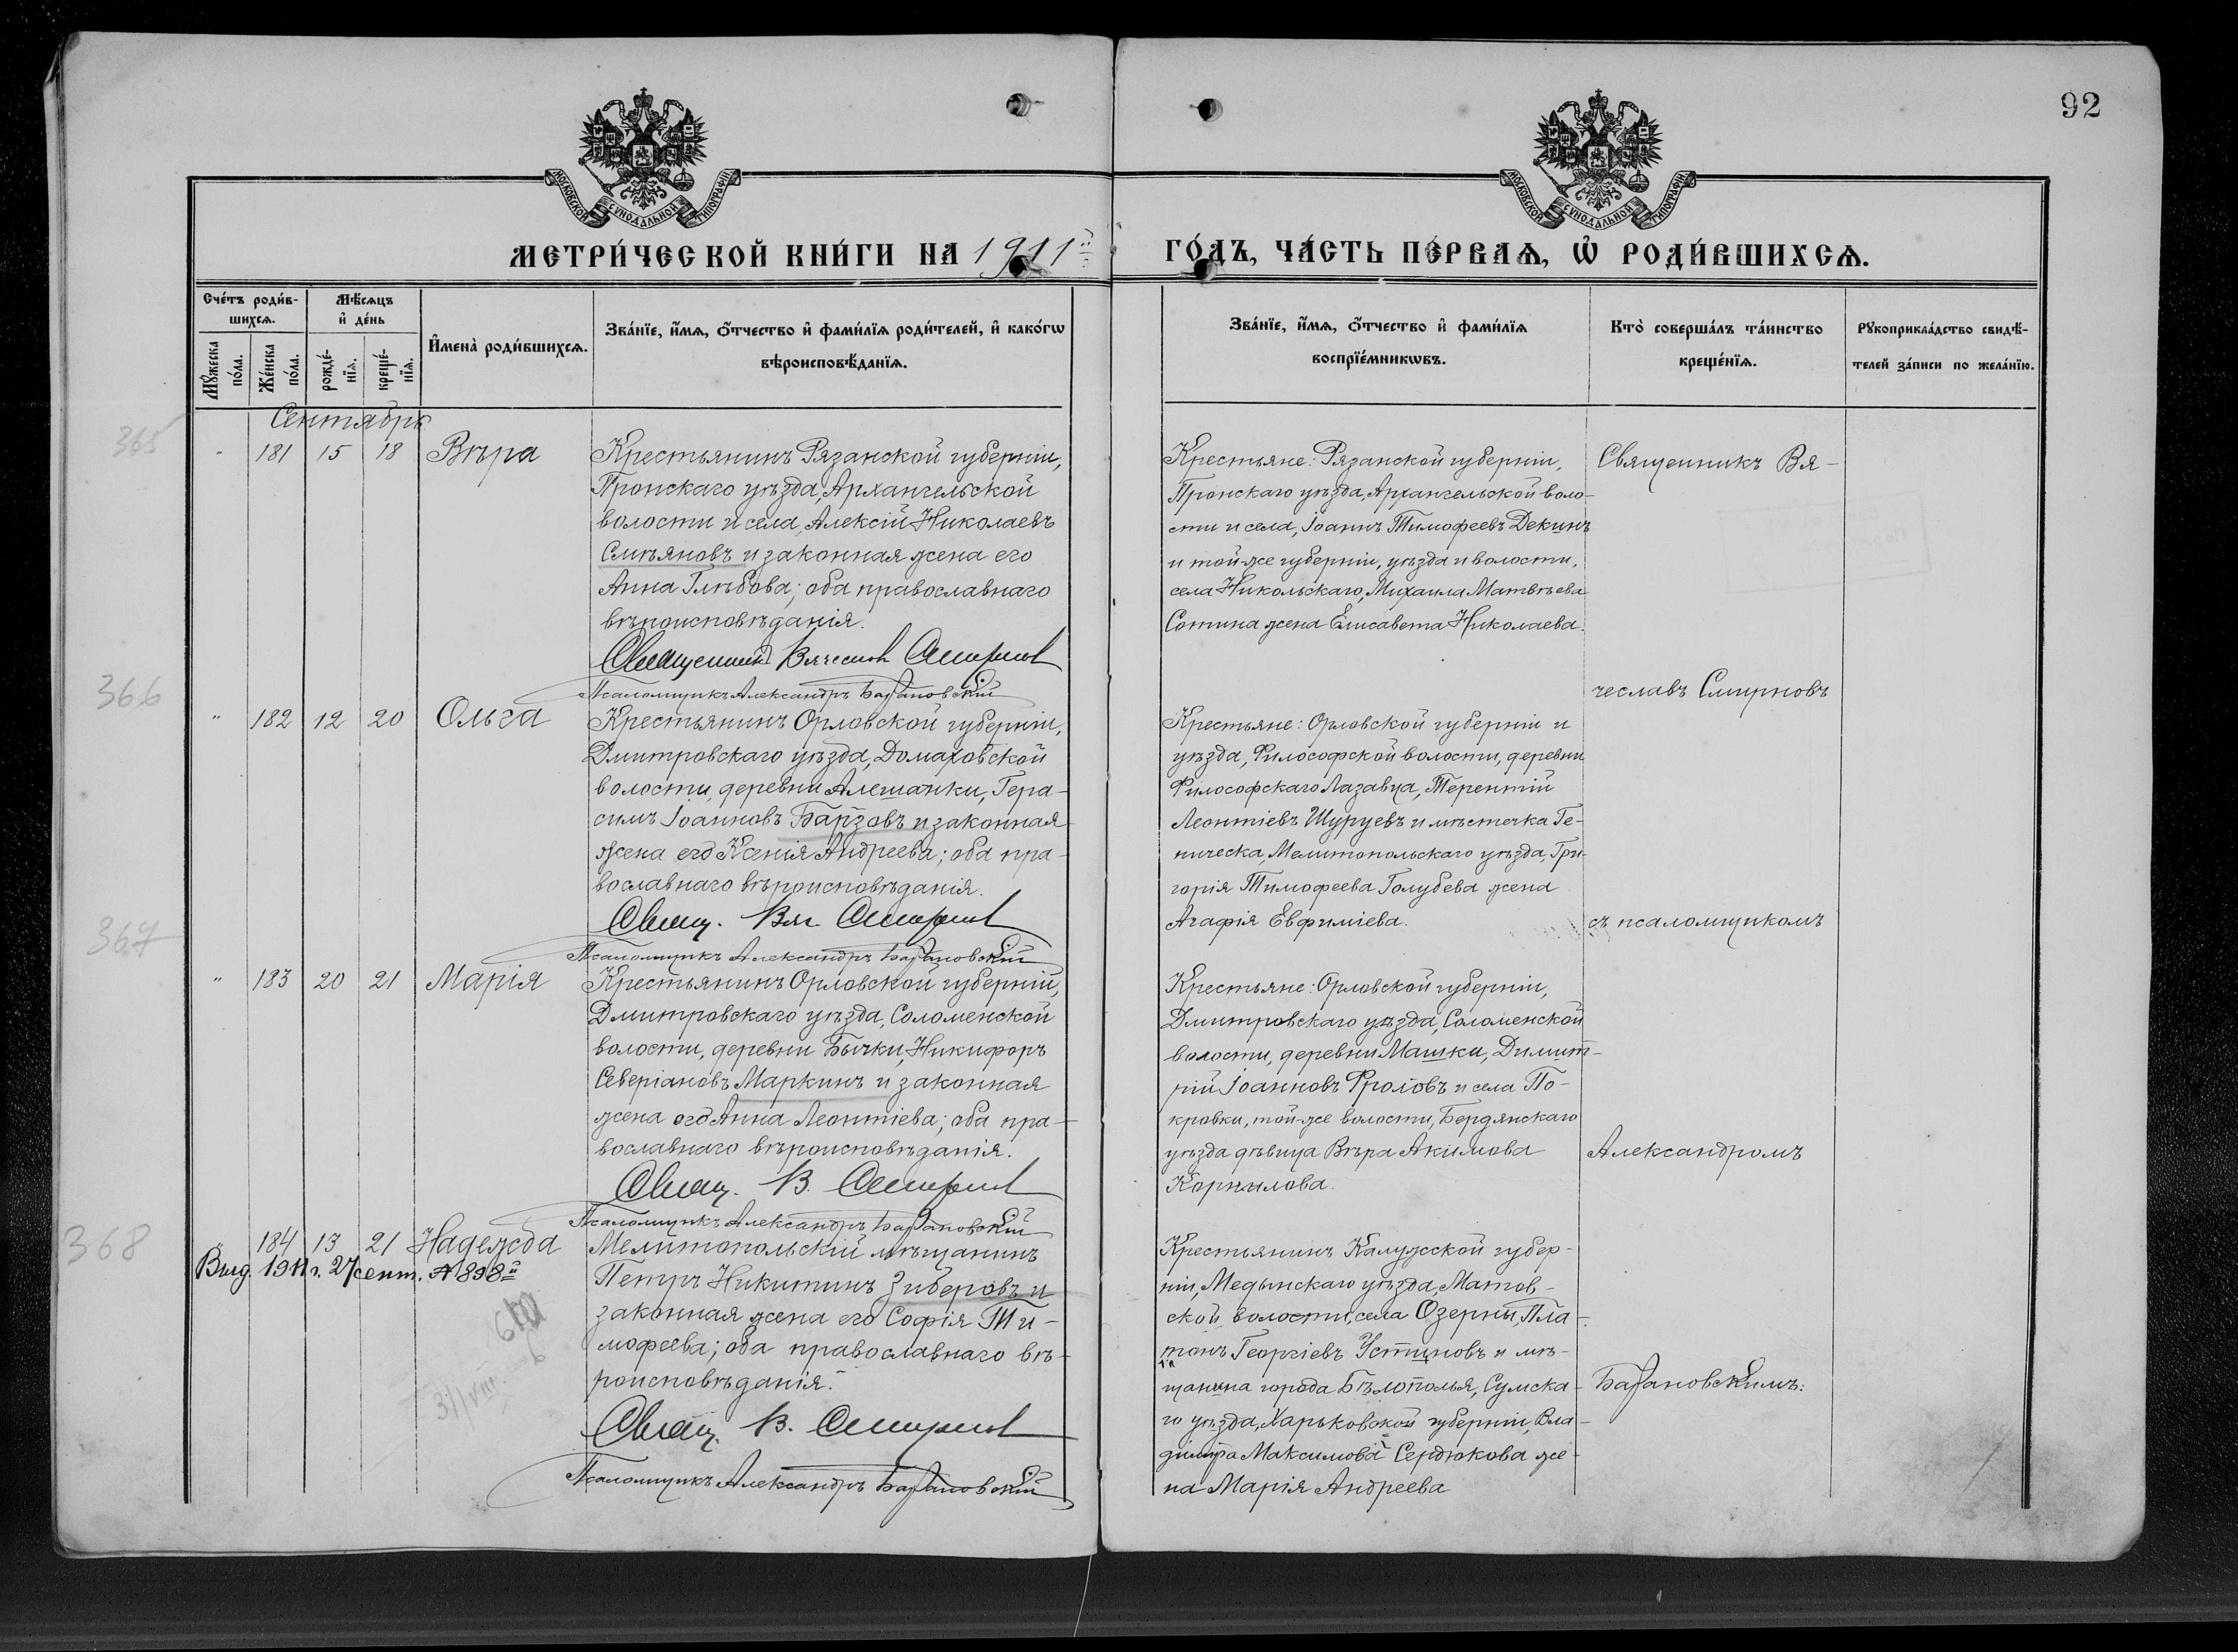 92
МОСКОВСКОЙ СѴНОДАЛЬНОЙ ТИПОГРАФІИ
МОСКОВСКОЙ СѴНОДАЛЬНОЙ ТИПОГРАФІИ
МЕТРИ́ЧЕСКОЙ КНИ́ГИ НА 1911й
ГО́ДЪ, ЧА́СТЬ ПЕ́РВАѦ, Ѡ҆ РОДИ́ВШИХСѦ.
Сче́тъ роди́в-
шихсѧ.
Мѣ́сѧцъ
и҆ де́нь
Мꙋ́жеска
по́ла.
Же́нска
по́ла.
рожде́-
нїѧ.
креще́-
нїѧ.
И҆мена̀ роди́вшихсѧ.
Зва́нїе, и҆́мѧ, ѻ҆́тчество и҆ фами́лїѧ роди́телей, и҆ како́гѡ
вѣроисповѣ́данїѧ.
Зва́нїе, и҆́мѧ, ѻ҆́тчество и҆ фами́лїѧ
воспрїе́мникѡвъ.
Кто̀ соверша́лъ та́инство
креще́нїѧ.
Рꙋкоприкла́дство свидѣ́-
телей за́писи по жела́нїю.
Сентябрь
365
" 181 15 18 Вѣра
Крестьянинъ Рязанской губерніи,
Пронскаго уѣзда, Архангельской
волости и села, Алексій Николаевъ
Смѣяновъ и законная жена его
Анна Глѣбова; оба православнаго
вѣроисповѣданія.
Священникъ Вячеслав Смирнов
Псаломщикъ Александръ Барановскій
Крестьяне: Рязанской губерніи,
Пронскаго уѣзда, Архангельской воло-
сти и села, Іоаннъ Тимофеевъ Декинъ
и той-же губерніи, уѣзда и волости,
села Никольскаго, Михаила Матвѣева
Сотина жена Елисавета Николаева.
Священникъ Вя-
чеславъ Смирновъ
366
" 182 12 20 Ольга
Крестьянинъ Орловской губерніи,
Дмитровскаго уѣзда, Домаховской
волости, деревни Алешанки, Гера-
симъ Іоанновъ Барзовъ и законная
жена его Ксенія Андреева; оба пра-
вославнаго вѣроисповѣданія.
Свящ. Вяч. Смирнов
Псаломщикъ Александръ Барановскій
Крестьяне: Орловской губерніи и
уѣзда, Философской волости, деревни
Философскаго Лазавца, Терентій
Леонтіевъ Шуруевъ и мѣстечка Ге-
ническа, Мелитопольскаго уѣзда, Гри-
горія Тимофеева Голубева жена
Агафія Евфиміева.
съ псаломщикомъ
367
" 183 20 21 Марія
Крестьянинъ Орловской губерніи,
Дмитровскаго уѣзда, Соломенской
волости, деревни Бычки, Никифоръ
Северіановъ Маркинъ и законная
жена его Анна Леонтіева; оба пра-
вославнаго вѣроисповѣданія.
Свящ. В. Смирнов
Псаломщикъ Александръ Барановскій
Крестьяне: Орловской губерніи,
Дмитровскаго уѣзда, Соломенской
волости, деревни Машки, Димит-
рій Іоанновъ Фроловъ и села По-
кровки, той-же волости, Бердянскаго
уѣзда дѣвица Вѣра Акимова
Корнилова.
Александромъ
368
" 184 13 21 Надежда
Выд. 1911 г. 27 сент. № 898й
31/VIII
Мелитопольскій мѣщанинъ
Петръ Никитинъ Зиберовъ и
законная жена его Софія Ти-
мофеева; оба православнаго вѣ-
роисповѣданія.
Свящ. В. Смирнов
Псаломщикъ Александръ Барановскій
Крестьянинъ Калужской губер-
ніи, Медынскаго уѣзда, Матов-
ской волости, села Озерны, Пла-
тонъ Георгіевъ Устиновъ и мѣ-
щанина города Бѣлополья, Сумска-
го уѣзда, Харьковской губерніи, Вла-
диміра Максимова Сердюкова же-
на Марія Андреева
Барановскимъ: